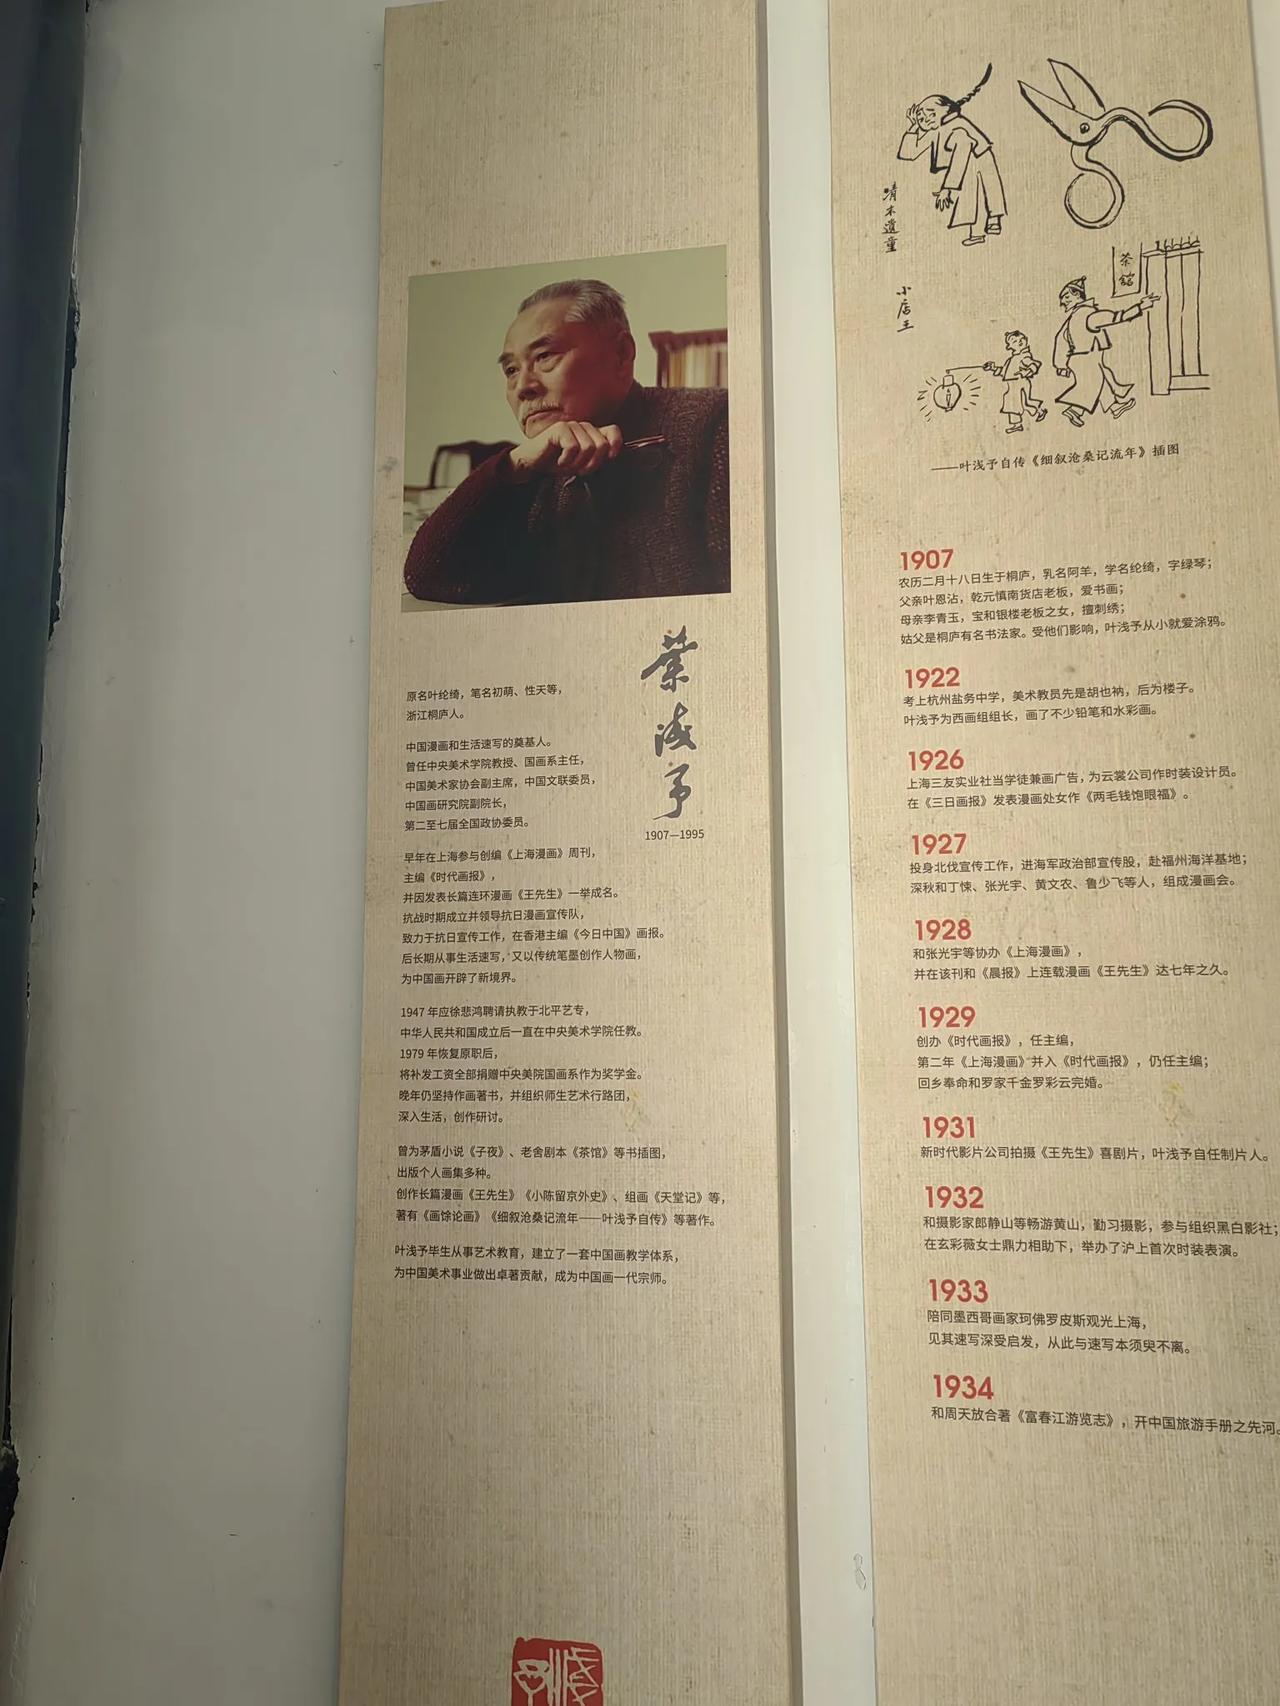 葉浅予
1907—1995
原名叶纶绮，笔名初萌、性天等，
浙江桐庐人。
中国漫画和生活速写的奠基人。
曾任中央美术学院教授、国画系主任，
中国美术家协会副主席，中国文联委员，
中国画研究院副院长，
第二至七届全国政协委员。
早年在上海参与创编《上海漫画》周刊，
主编《时代画报》，
并因发表长篇连环漫画《王先生》一举成名。
抗战时期成立并领导抗日漫画宣传队，
致力于抗日宣传工作，在香港主编《今日中国》画报。
后长期从事生活速写，又以传统笔墨创作人物画，
为中国画开辟了新境界。
1947 年应徐悲鸿聘请执教于北平艺专，
中华人民共和国成立后一直在中央美术学院任教。
1979 年恢复原职后，
将补发工资全部捐赠中央美院国画系作为奖学金。
晚年仍坚持作画著书，并组织师生艺术行路团，
深入生活，创作研讨。
曾为茅盾小说《子夜》、老舍剧本《茶馆》等书插图，
出版个人画集多种。
创作长篇漫画《王先生》《小陈留京外史》、组画《天堂记》等，
著有《画馀论画》《细叙沧桑记流年——叶浅予自传》等著作。
叶浅予毕生从事艺术教育，建立了一套中国画教学体系，
为中国美术事业做出卓著贡献，成为中国画一代宗师。
清末遗童
小店王
茶館
——叶浅予自传《细叙沧桑记流年》插图
1907
农历二月十八日生于桐庐，乳名阿羊，学名纶绮，字绿琴；
父亲叶恩沾，乾元慎南货店老板，爱书画；
母亲李青玉，宝和银楼老板之女，擅刺绣；
姑父是桐庐有名书法家。受他们影响，叶浅予从小就爱涂鸦。
1922
考上杭州盐务中学，美术教员先是胡也衲，后为楼子。
叶浅予为西画组组长，画了不少铅笔和水彩画。
1926
上海三友实业社当学徒兼画广告，为云裳公司作时装设计员。
在《三日画报》发表漫画处女作《两毛钱饱眼福》。
1927
投身北伐宣传工作，进海军政治部宣传股，赴福州海洋基地；
深秋和丁悚、张光宇、黄文农、鲁少飞等人，组成漫画会。
1928
和张光宇等协办《上海漫画》，
并在该刊和《晨报》上连载漫画《王先生》达七年之久。
1929
创办《时代画报》，任主编，
第二年《上海漫画》并入《时代画报》，仍任主编；
回乡奉命和罗家千金罗彩云完婚。
1931
新时代影片公司拍摄《王先生》喜剧片，叶浅予自任制片人。
1932
和摄影家郎静山等畅游黄山，勤习摄影，参与组织黑白影社；
在玄彩薇女士鼎力相助下，举办了沪上首次时装表演。
1933
陪同墨西哥画家珂佛罗皮斯观光上海，
见其速写深受启发，从此与速写本须臾不离。
1934
和周天放合著《富春江游览志》，开中国旅游手册之先河。